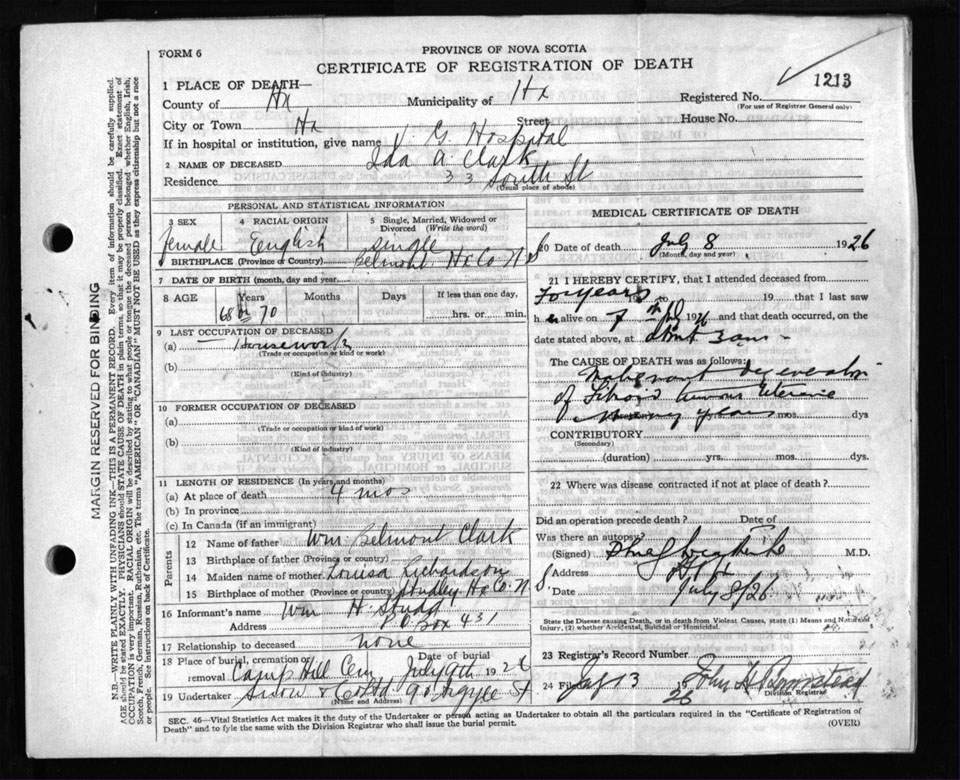 FORM 6
PROVINCE OF NOVA SCOTIA
CERTIFICATE OF REGISTRATION OF DEATH
1213
1 PLACE OF DEATH—
County of Hx Municipality of Hx Registered No.
(For use of Registrar General only)
City or Town Hx Street House No.
If in hospital or institution, give name V. G. Hospital
2 NAME OF DECEASED Ida A. Clark
Residence 33 South St
(Usual place of abode)
PERSONAL AND STATISTICAL INFORMATION
3 SEX 4 RACIAL ORIGIN 5 Single, Married, Widowed or Divorced (Write the word)
female English single
BIRTHPLACE (Province or Country) Belmont Hx Co N S
7 DATE OF BIRTH (month, day and year)
8 AGE Years Months Days If less than one day,
68 or 70 hrs. or min.
9 LAST OCCUPATION OF DECEASED
(a) Housework
(Trade or occupation or kind or work)
(b)
(Kind of industry)
10 FORMER OCCUPATION OF DECEASED
(a)
(Trade or occupation or kind of work)
(b)
(Kind of industry)
11 LENGTH OF RESIDENCE (In years and months)
(a) At place of death 4 mos
(b) In province
(c) In Canada (if an immigrant)
Parents
12 Name of father Wm. Belmont Clark
13 Birthplace of father (Province or country)
14 Maiden name of mother Louisa Richardson
15 Birthplace of mother (Province or country) Hx Co. N S
16 Informant's name Wm H. Studd
Address P.O Box 431
17 Relationship to deceased none
18 Place of burial, cremation or removal Camp Hill Cem Date of burial July 9th 1926
19 Undertaker Snow & Co Ltd 90 Argyle St
(Name and Address)
MEDICAL CERTIFICATE OF DEATH
20 Date of death July 8 1926
(Month, day and year)
21 I HEREBY CERTIFY, that I attended deceased from
For years 19 to 19 that I last saw
h er alive on 7th July 1926 and that death occurred, on
date stated above, at about 3 am
The CAUSE OF DEATH was as follows:
Malignant degeneration
of Fibroid tumour uterine
many years mos. dys
CONTRIBUTORY
(Secondary)
(duration) yrs. mos. dys
22 Where was disease contracted if not at place of death?
Did an operation precede death? Date of
Was there an autopsy?
(Signed) M.D.
Address
Date July 8/26
State the Disease causing Death, or in death from Violent Causes, state (1) Means and Nature of Injury, (2) whether Accidental, Suicidal or Homicidal.
23 Registrar's Record Number
24 Filed 13 1926
Division Registrar
SEC. 46—Vital Statistics Act makes it the duty of the Undertaker or person acting as Undertaker to obtain all the particulars required in the "Certificate of Registration of
Death" and to fyle the same with the Division Registrar who shall issue the burial permit. (OVER)
MARGIN RESERVED FOR BINDING
N.B.—WRITE PLAINLY WITH UNFADING INK—THIS IS A PERMANENT RECORD. Every item of information should be carefully supplied.
AGE should be stated EXACTLY. PHYSICIANS should STATE CAUSE OF DEATH in plain terms, so that it may be properly classified. Exact statement of
OCCUPATION is very important. RACIAL ORIGIN will be described by stating to what people or tongue the deceased person belonged whether English, Irish,
Scotch, French, German, Russian, Ruthenian, etc. The terms "AMERICAN" or "CANADIAN" MUST NOT BE USED as they express citizenship but not a race
or people. See instructions on back of Certificate.